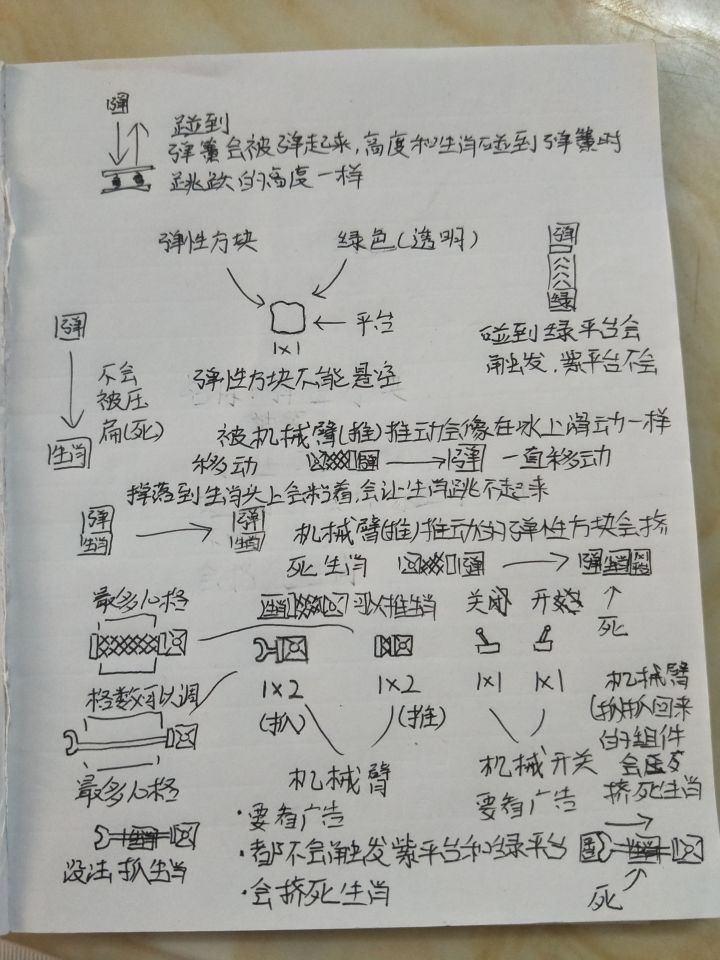 弹
碰到
弹簧会被弹起来,高度和生肖碰到弹簧时
跳跃的高度一样
弹性方块
绿色(透明)
平台
1×1
弹性方块不能悬空
弹
绿
碰到绿平台会
触发,紫平台不会
弹
不会
被压
扁(死)
生肖
被机械臂(推)推动会像在冰上滑动一样
移动
弹
弹
一直移动
掉落到生肖头上会粘着,会让生肖跳不起来
弹
生肖
弹
生肖
机械臂(推)推动的弹性方块会挤
死生肖
弹
弹生肖
死
最多心格
格数可以调
最多心格
生肖
可以推生肖
1×2
(抓)
1×2
(推)
机械臂
·要看广告
·都不会触发紫平台和绿平台
·会挤死生肖
关闭
开始
1×1
1×1
机械开关
要看广告
机械臂
(抓)抓回来
的组件
会
挤死生肖
生肖
没法抓生肖
生肖
死